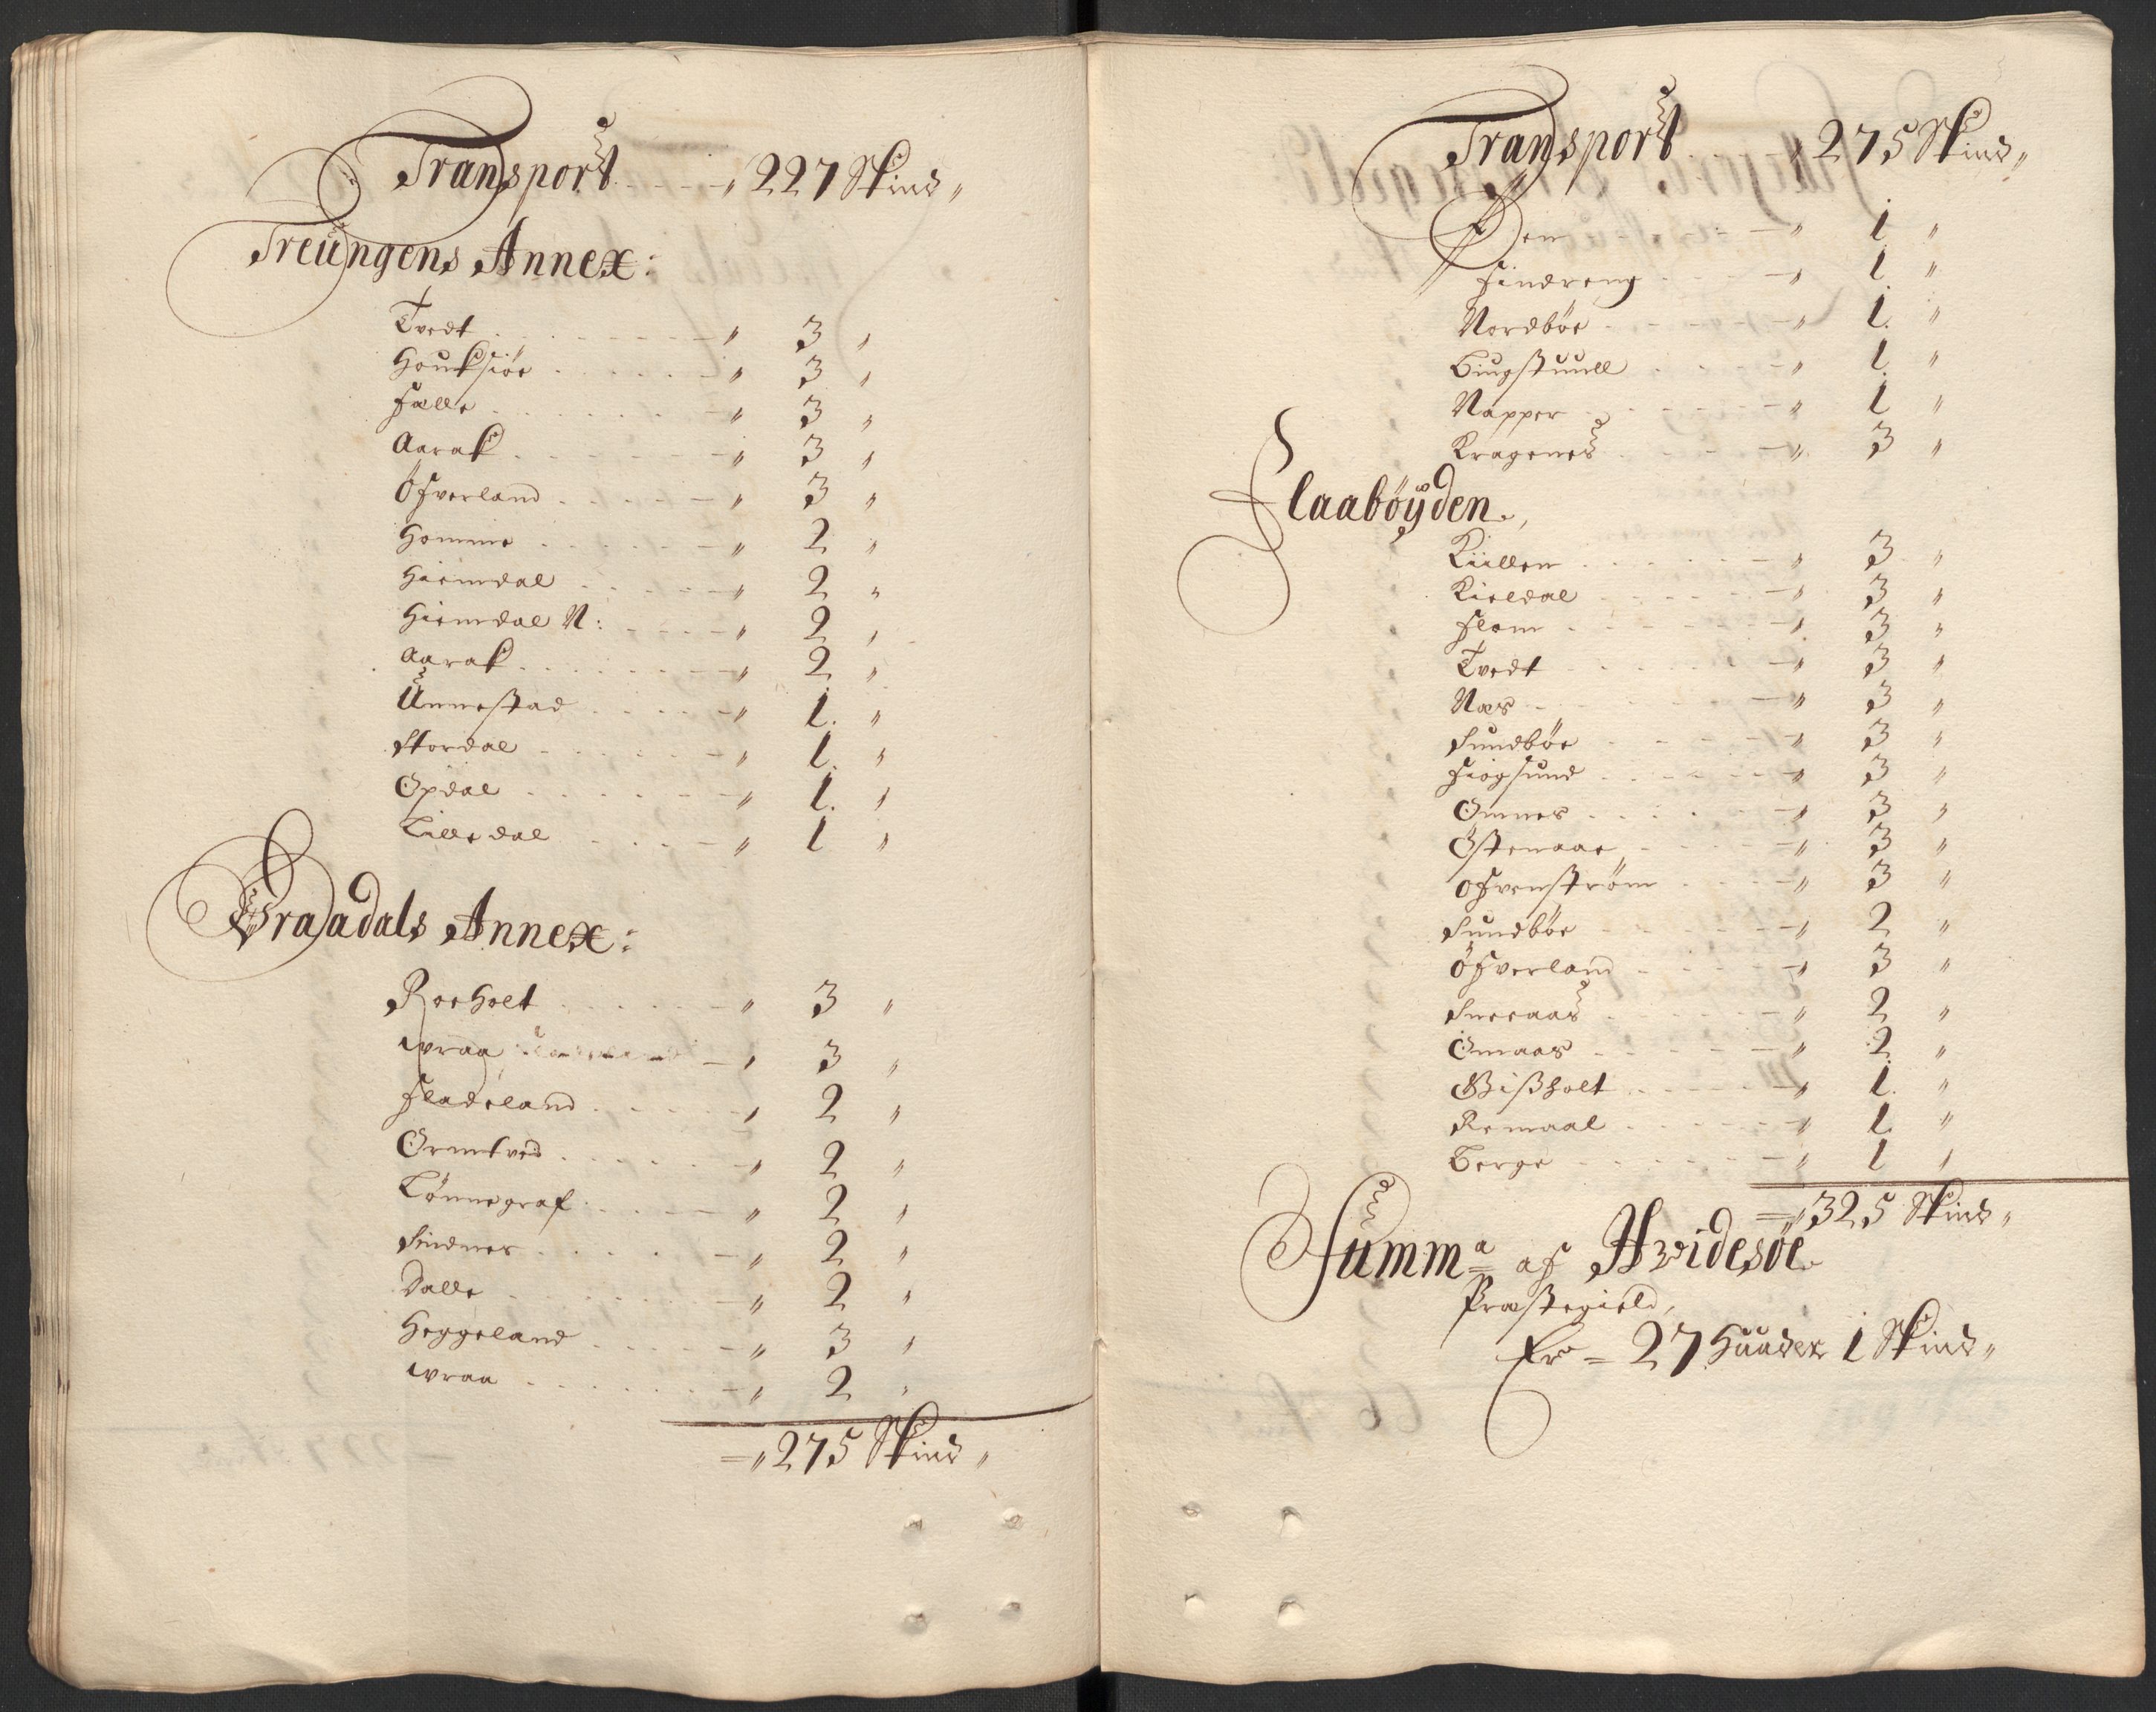 Transport - - - - „ 227 Skind „
Treungens Annex:
Tvedt - - - „ 3 „
Houksiøe - - - „ 3 „
Falle - - - „ 3 „
Aarak - - - „ 3 „
Öfverland - - - „ 3 „
Homme - - - „ 2 „
Hiemdal - - - „ 2 „
Hiemdal N: - - - „ 2 „
Aarak - - - „ 2 „
Unnestad - - - „ 1. „
Stordal - - - „ 1. „
Opdal - - - „ 1. „
Lilledal - - - „ 1 „
Vraadals Annex:
Roeholt - - - „ 3 „
wraa - „ 3 „
Fladeland - - - „ 2 „
Ormtved - - - „ 2 „
Lönnegraf - - - „ 2 „
Sindnes - - - „ 2 „
Dalle - - - „ 2 „
Heggeland - - - „ 3 „
wraa - - - „ 2 „
= „ 275 Skind „
Transport - - - „ 275 Skind „
- - - „ 1 „
Findreng - - - „ 1 „
Nordböe - - - „ 1. „
Biugstuull - - - „ 1. „
Napper - - - „ 1 „
Kragenes - - - „ 3 „
Flaabøyden
Kiillen - - - „ 3 „
Kieldal - - - „ 3 „
Flom - - - „ 3 „
Tvedt - - - „ 3 „
Næs - - - „ 3 „
Sundböe - - - „ 3 „
Fiøgsund - - - „ 3 „
Omnes - - - „ 3 „
Östenaae - - - „ 3 „
Ofvenström - - - „ 3 „
Sundböe - - - „ 2 „
Öfverland - - - „ 3 „
Sneeaas - - - „ 2 „
Omaas - - - „ 2 „
Gißholt - - - „ 1. „
Remaal - - - „ 1. „
Berge - - - „ 1 „
= „ 325 Skind „
Summa af Hvidesøe
Præstegield,
Er = 27 Huuder 1 Skind „